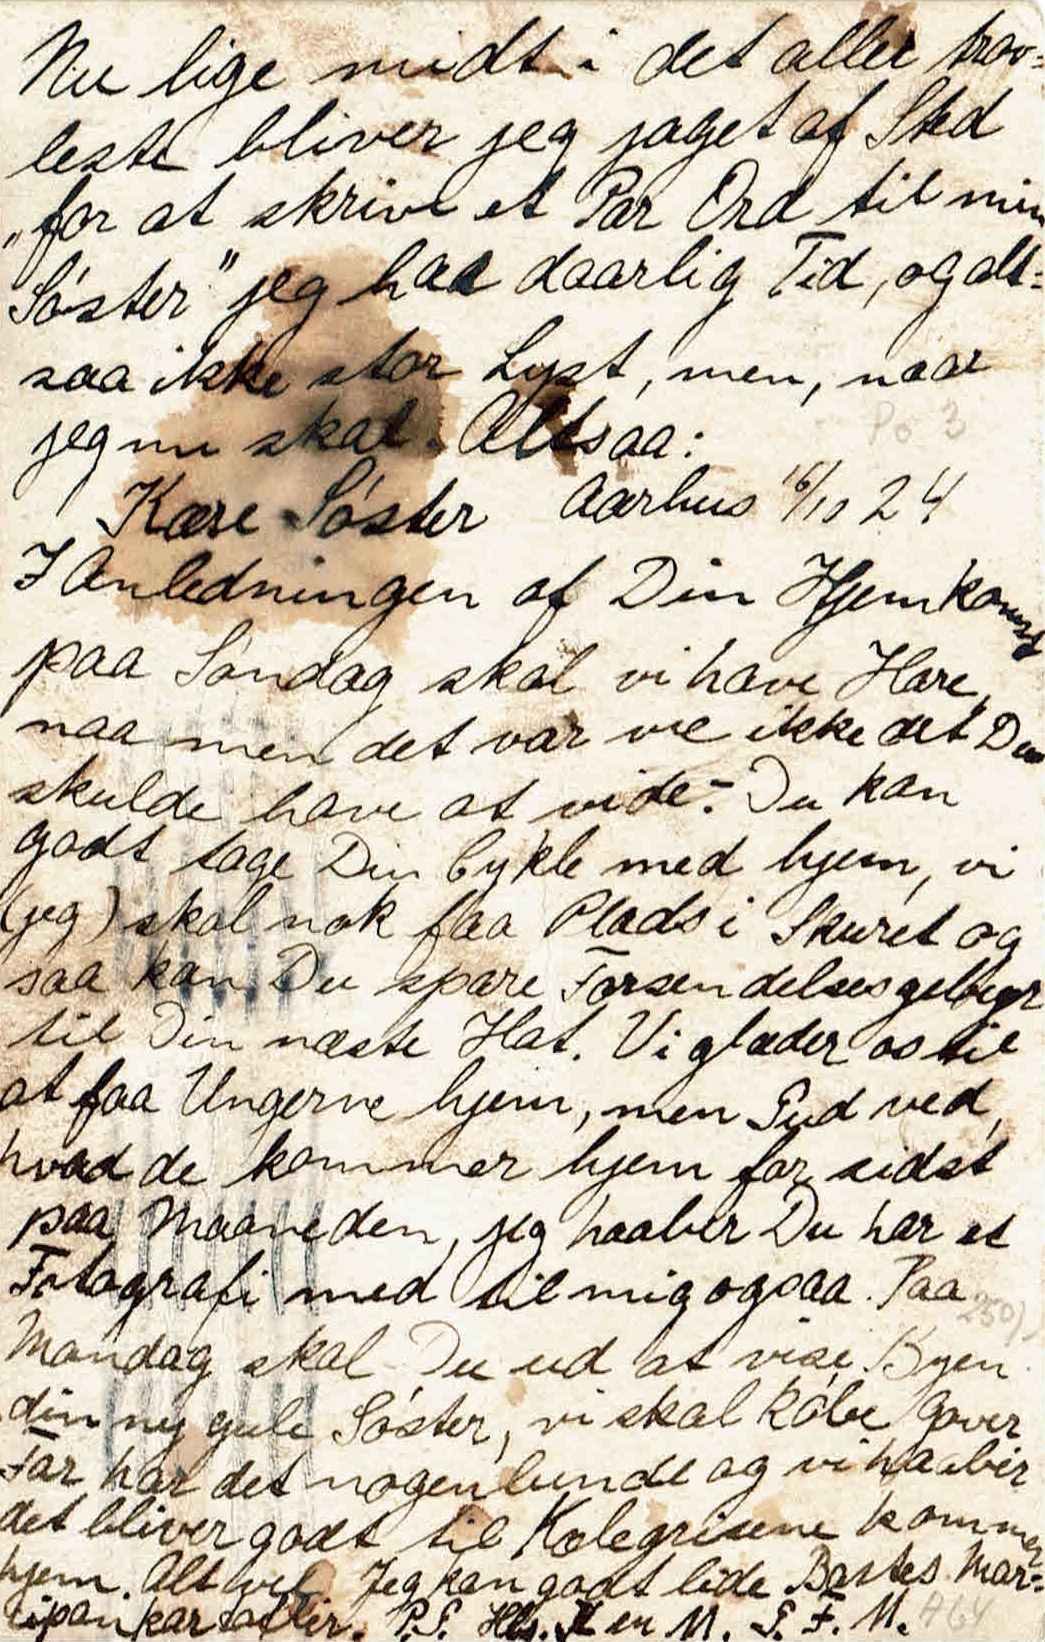 Nu lige midt i det aller trav=
leste bliver jeg jaget af Sted
"for at skrive et Par Ord til min
Søster" jeg har daarlig Tid, og alt=
saa ikke stor Lyst, men, naar
jeg nu skal. Altsaa:
Po 3
Kære Søster Aarhus 16/10 24
I Anledningen af Din Hjemkomst
paa Søndag skal vi have Hare,
naa men det var vel ikke det Du
skulde have at vide.- Du kan
godt tage Din Cykle med hjem, vi
(jeg) skal nok faa Plads i Skuret og
saa kan Du spare Forsendelsesgebyr
til Din næste Hat. Vi glæder os til
at faa Ungerne hjem, men Gud ved,
hvad de kommer hjem for sidst
paa Maaneden, jeg haaber Du har et
Fotografi med til mig ogsaa. Paa
250,
Mandag skal Du ud at vise Byen
din ny gule Søster, vi skal købe Gaver
Far har det nogenlunde og vi haaber
det bliver godt til Kælegrisene kommer
hjem. Alt vel. Jeg kan godt lide Bastes Mar=
cipankartofler. P.S. M. G. F. M.